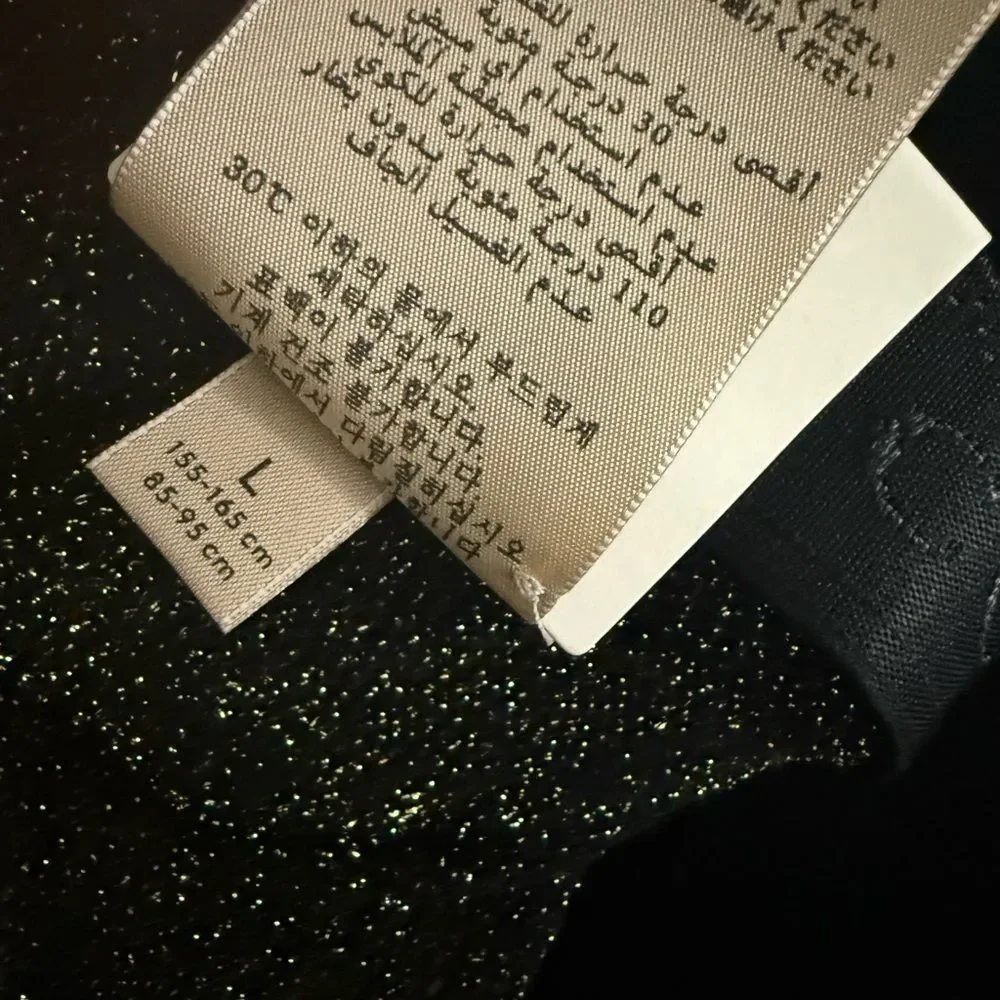 ください
ください
أقصى درجة حرارة للغسيل
30 درجة مئوية
عدم استخدام أي مبيض
عدم استخدام مجففة الملابس
أقصى درجة حرارة للكوي
110 درجة مئوية بدون بخار
عدم الغسيل الجاف
30℃ 이하의 물에서 부드럽게
세탁하십시오.
표백이 불가합니다.
기계 건조 불가합니다.
이하에서 다림질하십시오
L
155-165 cm
85-95 cm